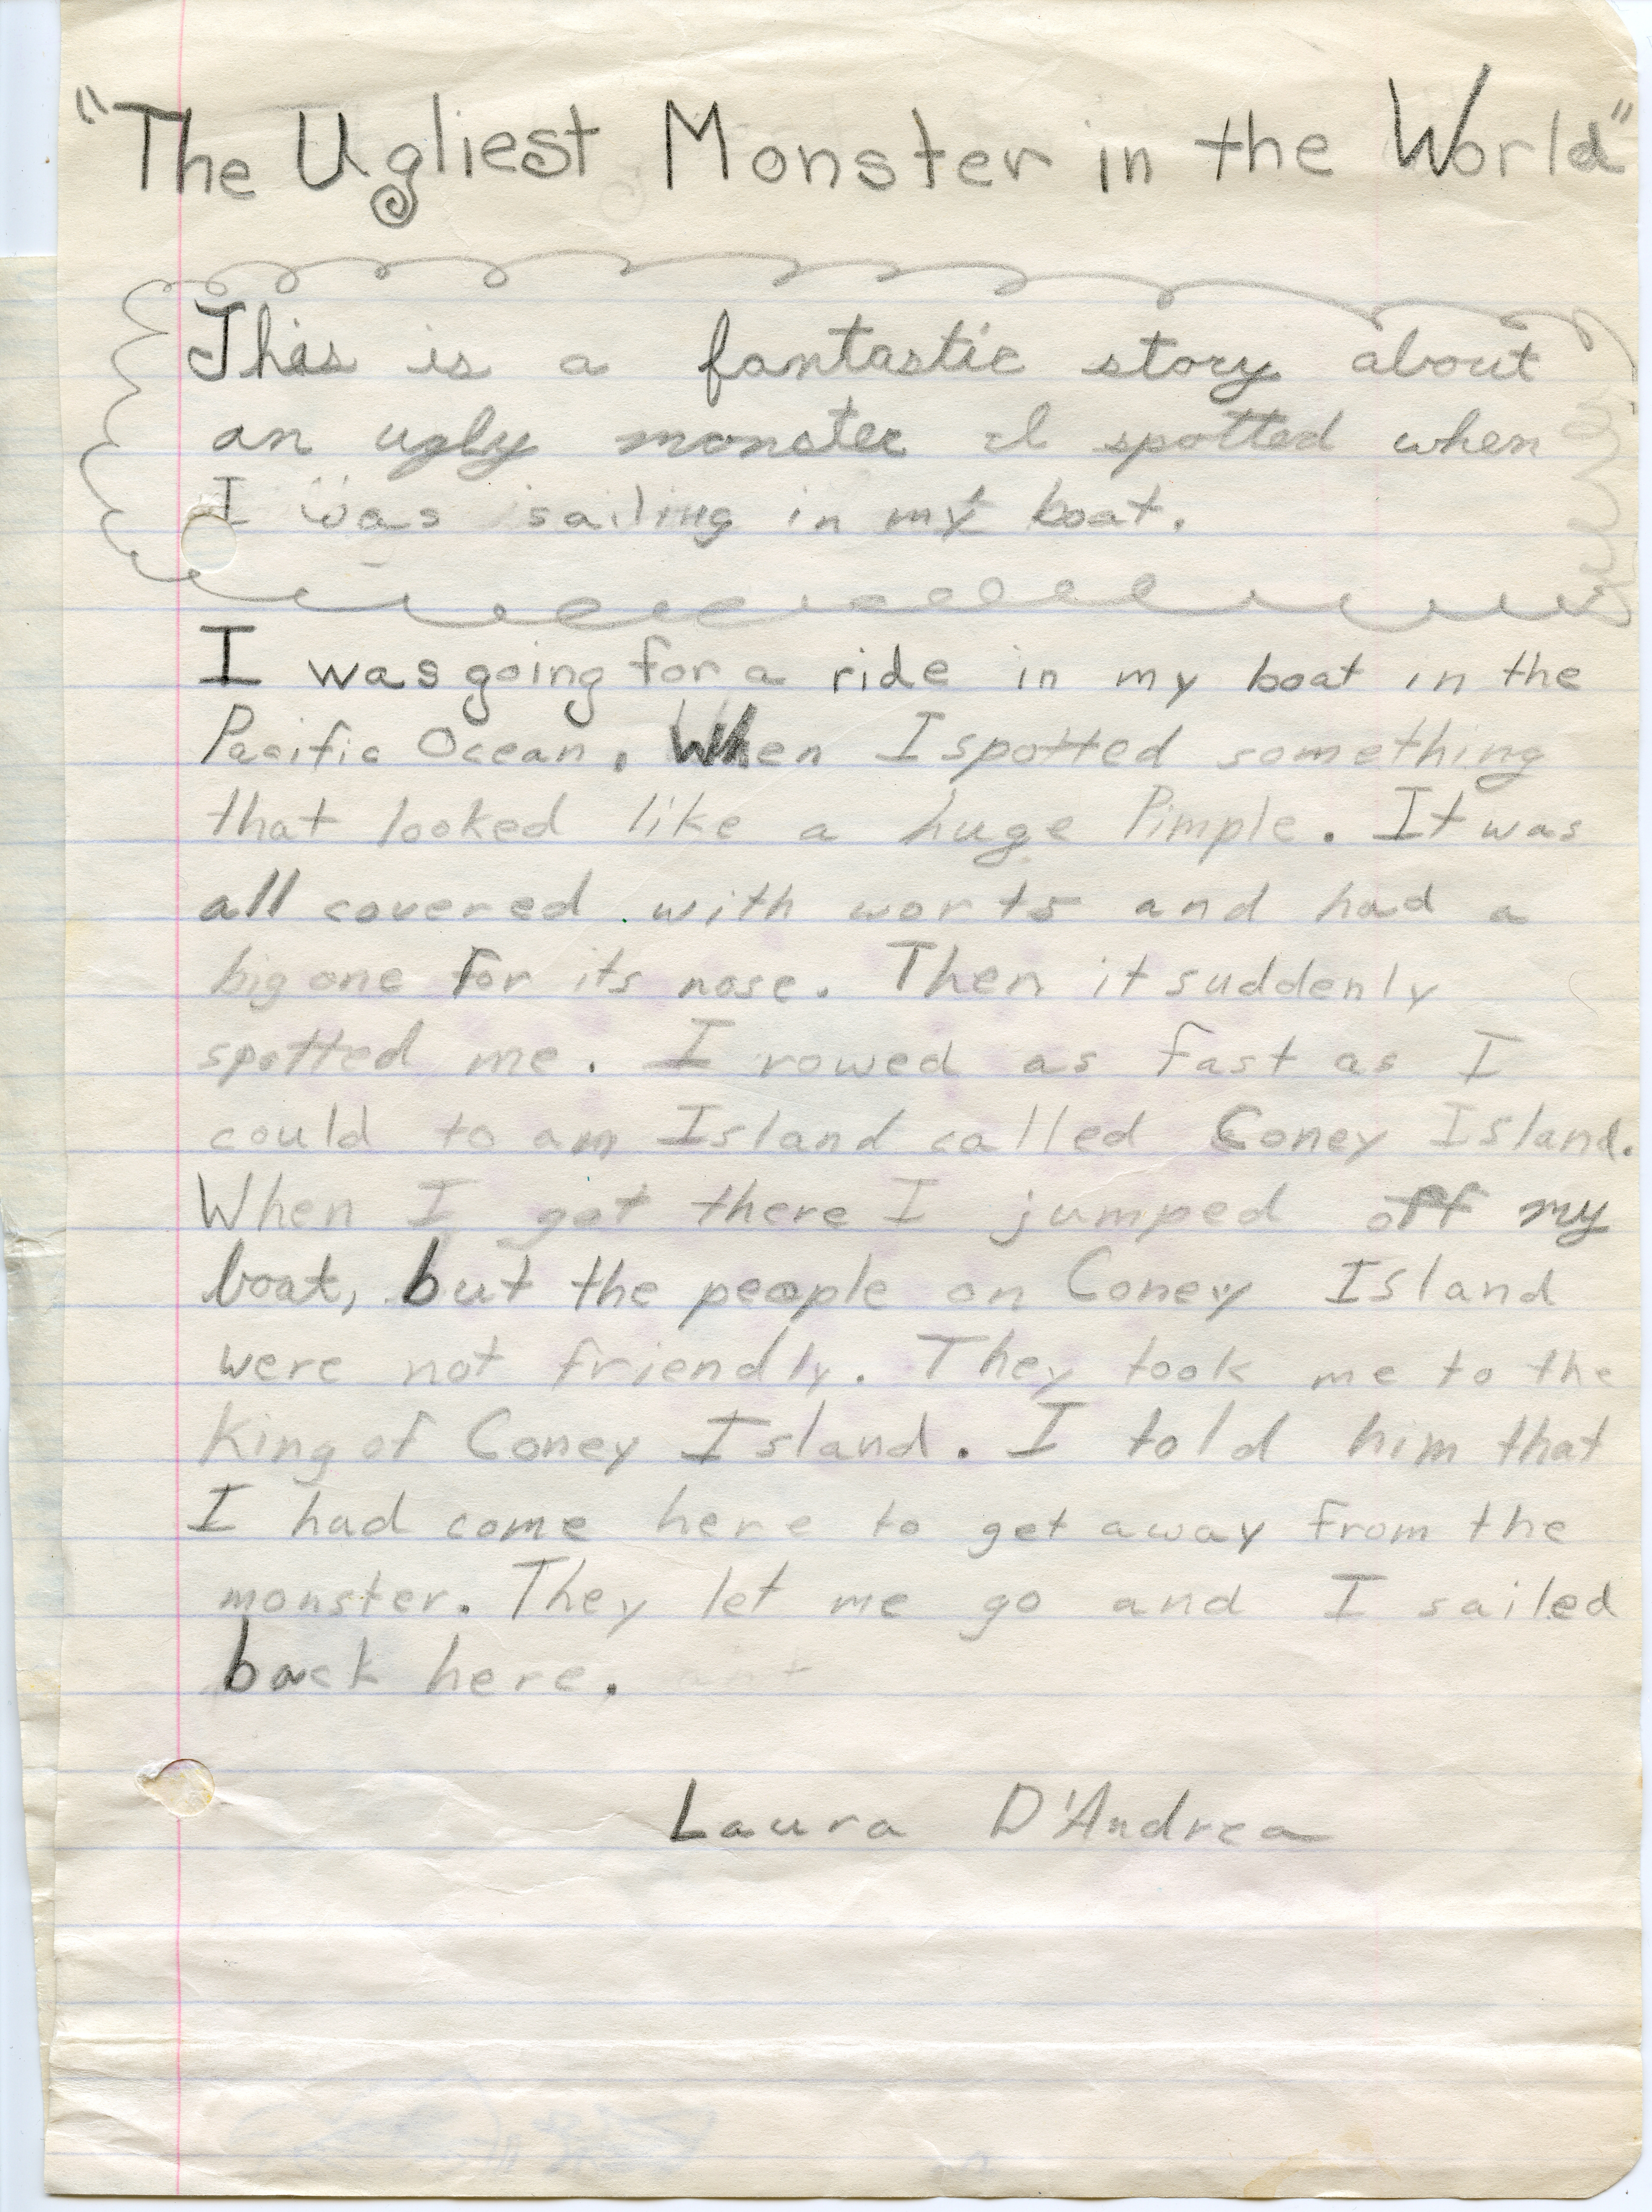 "The Ugliest Monster in the World"
This is a fantastic story about
an ugly monster I spotted when
I was sailing in my boat.
I was going for a ride in my boat in the
Pacific Ocean. When I spotted something
that looked like a huge Pimple. It was
all covered with worts and had a
big one for its nose. Then it suddenly
spotted me. I rowed as fast as I
could to am Island called Coney Island.
When I got there I jumped off my
boat, but the people on Coney Island
were not friendly. They took me to the
King of Coney Island. I told him that
I had come here to get away from the
monster. They let me go and I sailed
back here.
Laura D'Andrea